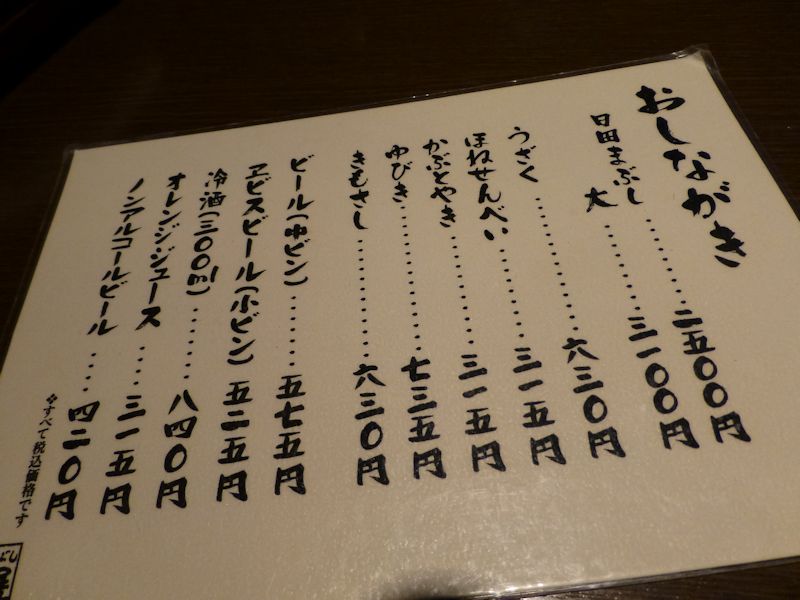 おしながき
日田まぶし………二五〇〇円
大………三一〇〇円
うざく………六三〇円
ほねせんべい………三一五円
かぶとやき………三一五円
ゆびき………七三五円
きもさし………六三〇円
ビール(中ビン)……五七五円
ヱビスビール(小ビン) 五二五円
冷酒(三〇〇ml)……八四〇円
オレンジジュース……三一五円
ノンアルコールビール……四二〇円
❖すべて税込価格です
ぶし